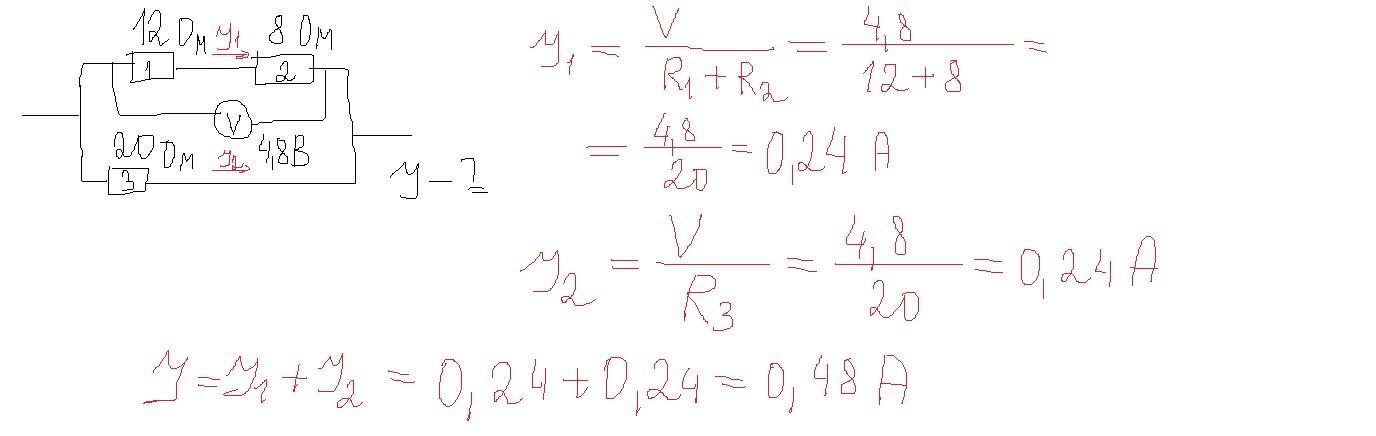 12 Ом y₁ 8 Ом
1 2
V
20 Ом y₂ 4,8 В
3
y - ?
y₁ = V / (R₁ + R₂) = 4,8 / (12 + 8) =
= 4,8 / 20 = 0,24 A
y₂ = V / R₃ = 4,8 / 20 = 0,24 A
y = y₁ + y₂ = 0,24 + 0,24 = 0,48 A